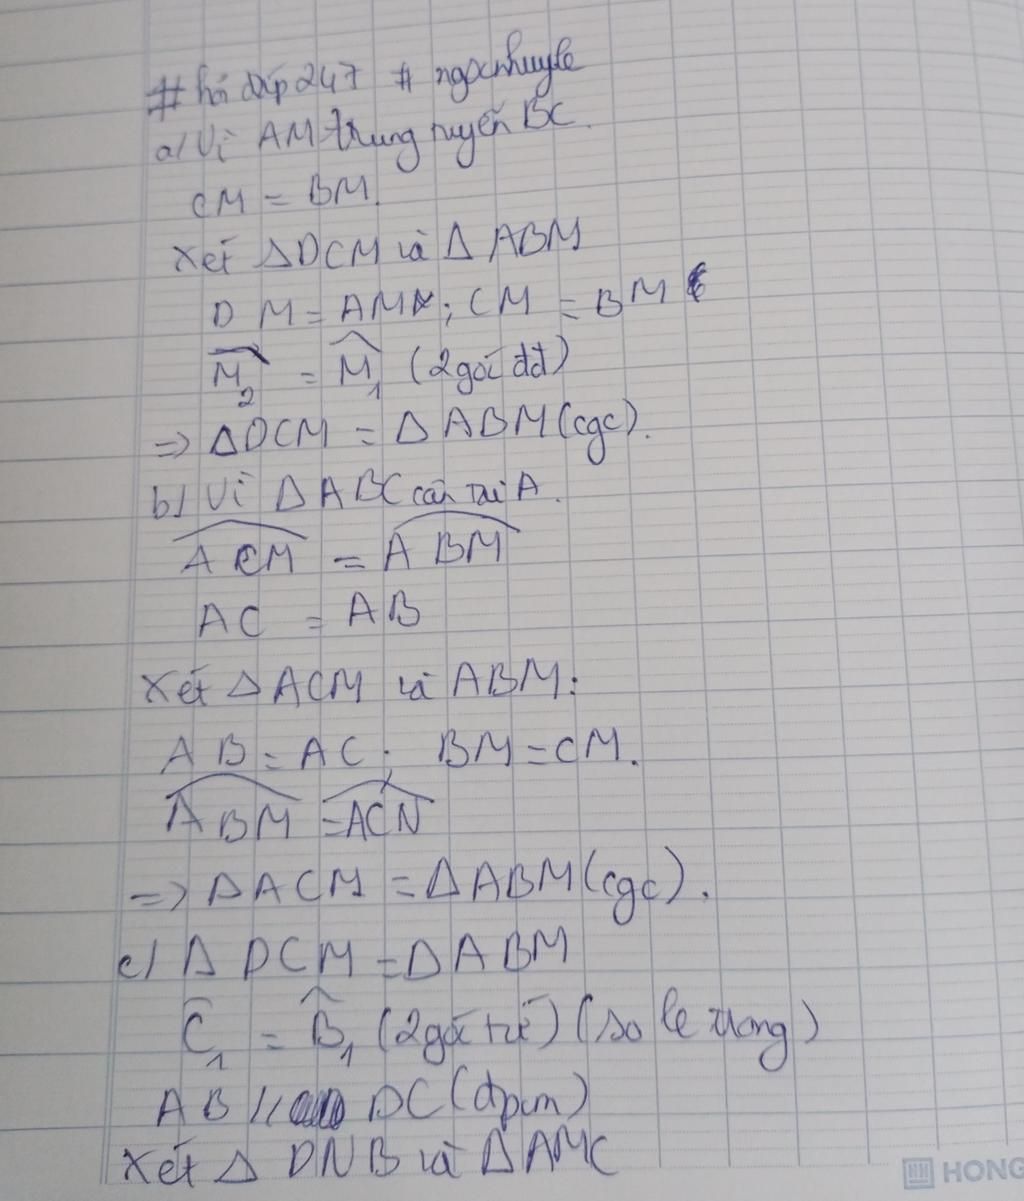 # hỏi đáp 247 # ngocnhuyle
a/ Vì AM trung tuyến BC.
CM = BM.
Xét ΔDCM và Δ ABM
DM = AM; CM = BM
M̂₂ = M̂₁ (2 góc đđ)
=> ΔDCM = ΔABM (cgc).
b/ Vì ΔABC cân tại A.
\widehat{ACM} = \widehat{ABM}
AC = AB
Xét ΔACM và ABM:
AB = AC; BM = CM.
\widehat{ABM} = \widehat{ACN}
=> ΔACM = ΔABM (cgc).
c/ ΔDCM = ΔABM
Ĉ₁ = B̂₁ (2 góc tứ) (so le trong)
AB // DC (đpcm)
Xét Δ DNB và ΔAMC
HONG